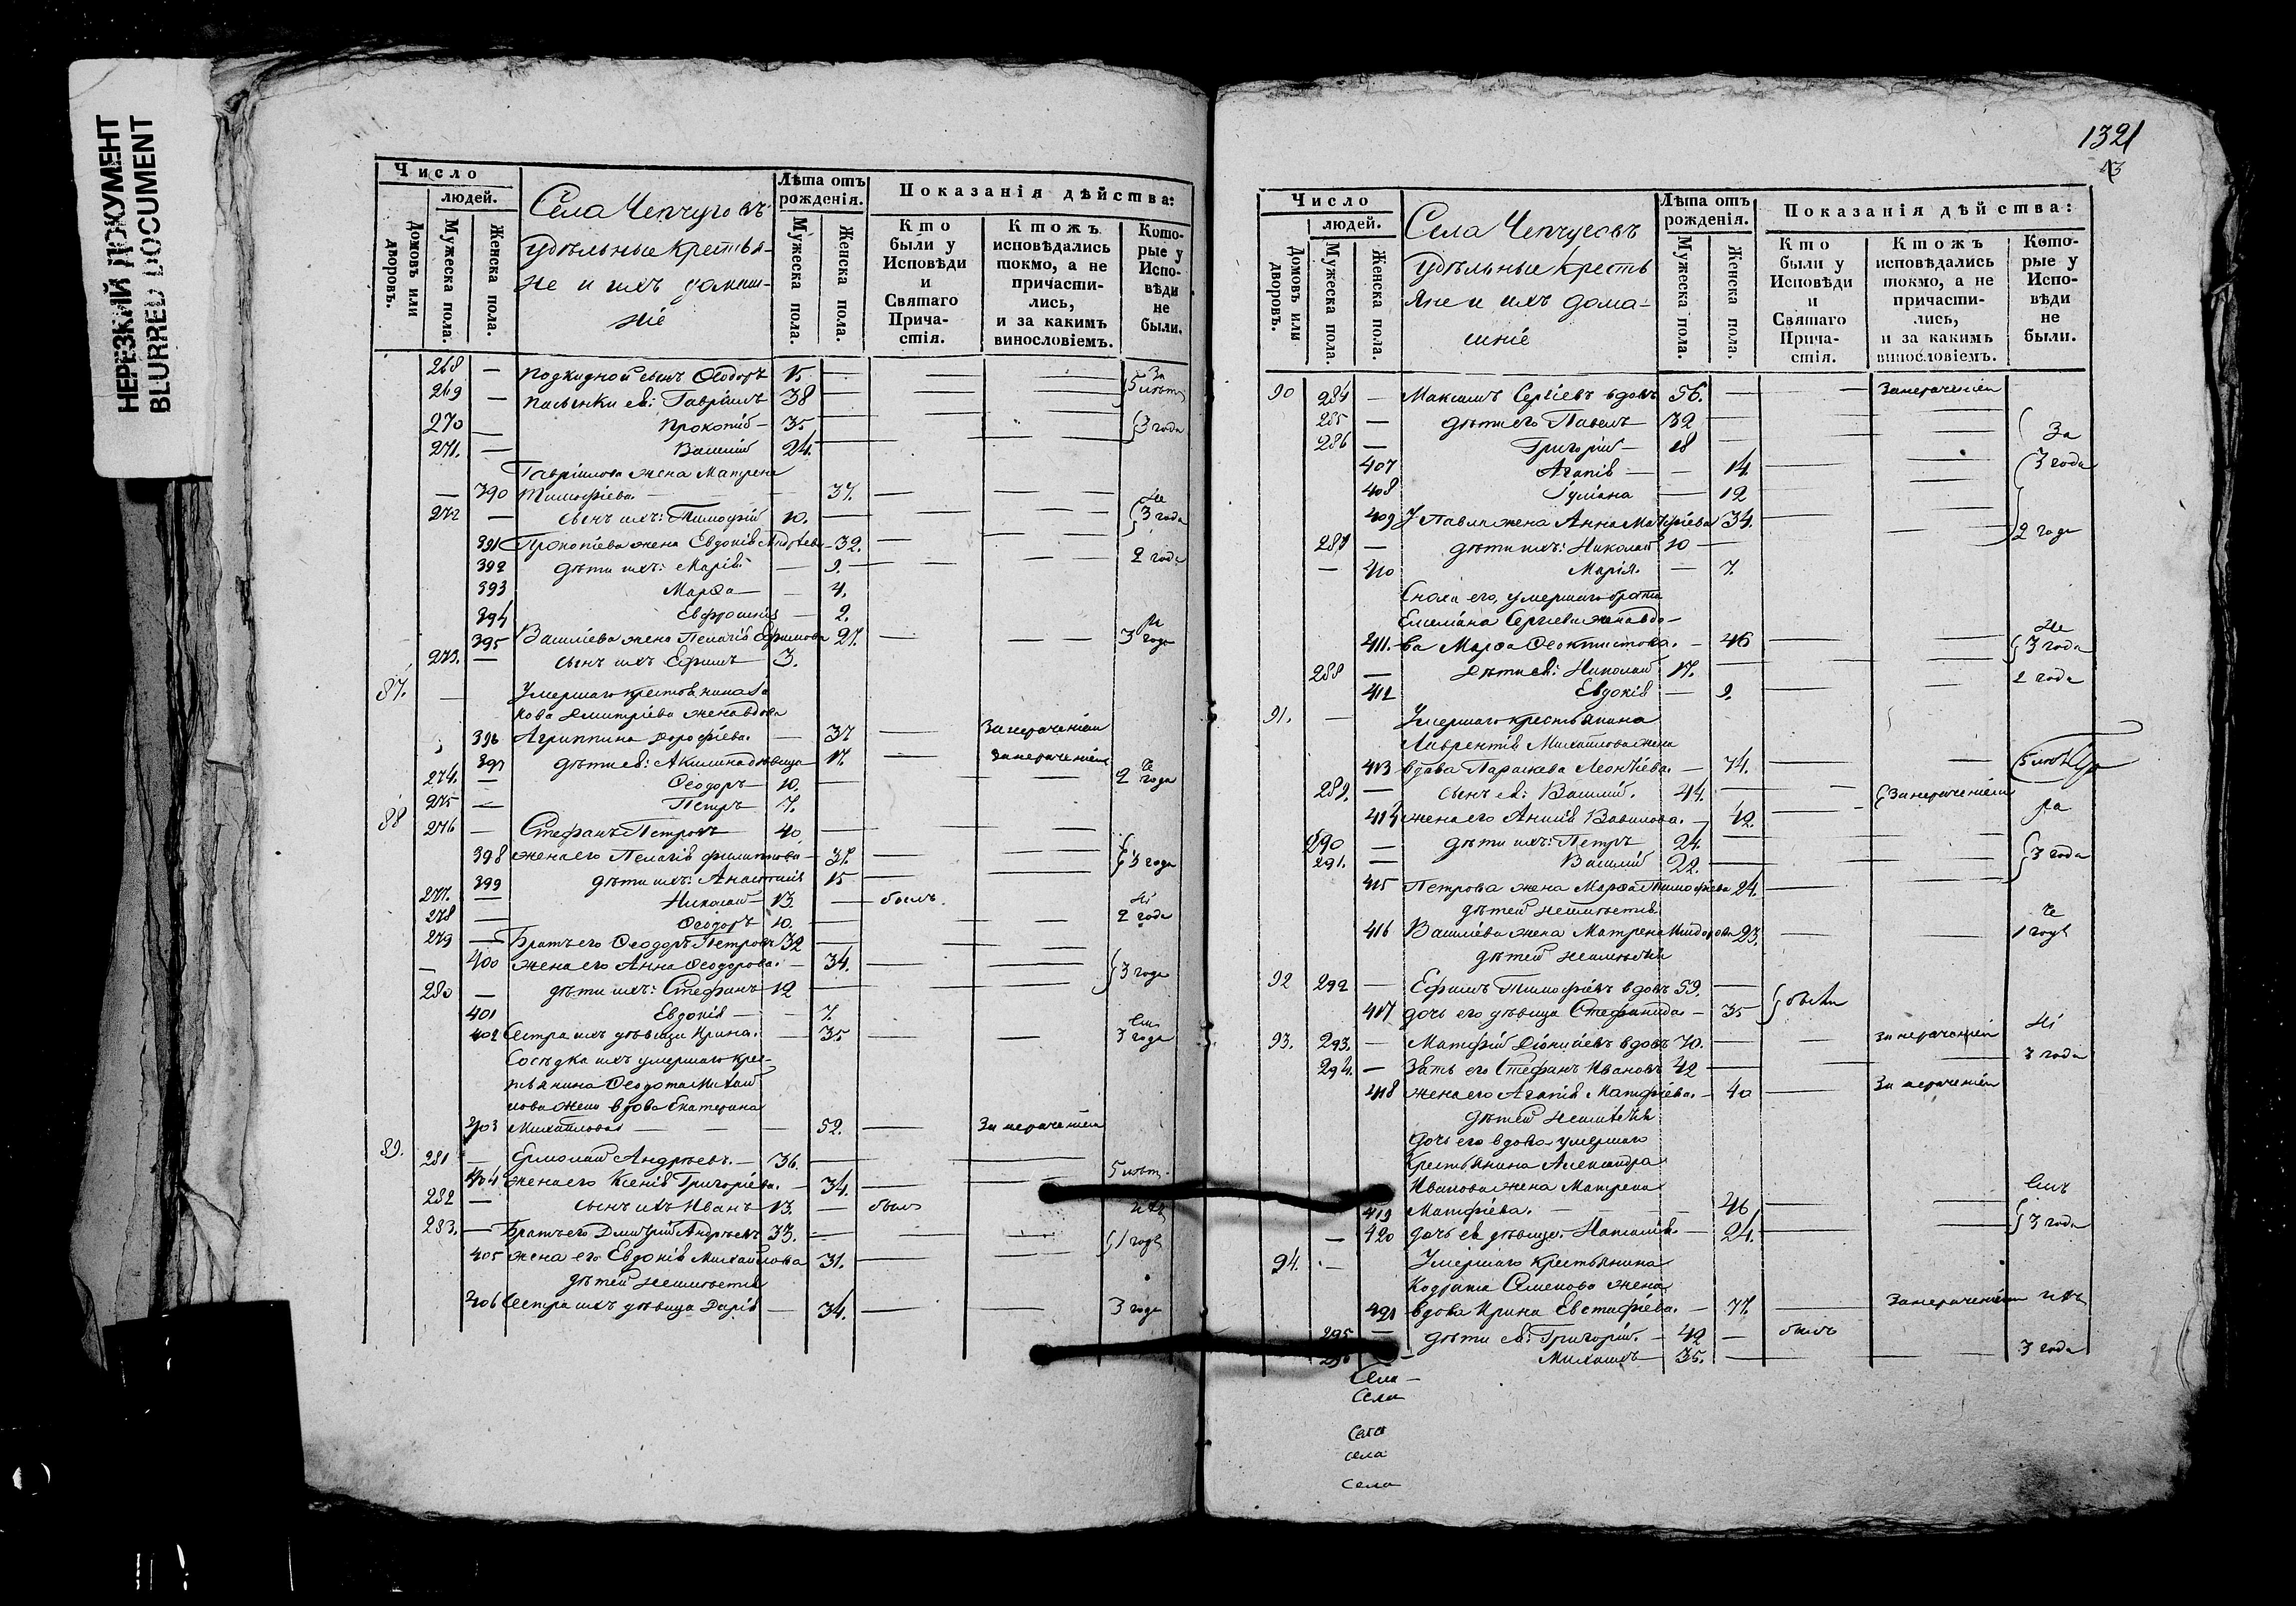 НЕРЕЗКИЙ ДОКУМЕНТ
BLURRED DOCUMENT
Число
людей.
Домовъ или дворовъ.
Мужеска пола.
Женска пола.
Села Чепчуговъ
удѣльные крестья-
не и ихъ домаш-
ніе
Лѣта отъ рожденія.
Мужеска пола.
Женска пола.
Показанія дѣйства:
Кто были у Исповѣди и Святаго Прича-стія.
Ктожъ исповѣдались токмо, а не причасти-лись, и за какимъ винословіемъ.
Кото-рые у Испо-вѣди не были.
268 — подкидной сынъ Ѳеодоръ 15 — — — За
269 — Гавріилъ 38 — — — 5 лѣтъ
270 — Прокопій — 35 — — — 3 года
271. — Василій 24. — — —
Гавріилова жена Матрена
— 390 Тимофіева. — — 37. — — Не
272 — сынъ ихъ: Тимофій 10. — — — 3 года
391 Прокопіева жена Евдокія Андрѣева — 32. — —
392 дѣти ихъ: Марія — 9. — — 2 года
393 Марѳа — — 4.
394 Евфросинія — 2.
395 Василіева жена Пелагія Ефимова 27. — — 3 года
273. — сынъ ихъ Ефимъ 3.
87. — Умершаго крестьянина Іа
кова Дмитріева жена вдова
396 Агриппина Дорофіева. — 37 — За нераченіем
397 дѣти ея: Акилина дѣвица — 17. — За нераченіем
274. — Ѳеодоръ — 10. — — — 2 года
275 — Петръ — 7.
88 276 — Стефанъ Петровъ 40 — — —
398 жена его Пелагія Филиппова — 37. — — 3 года
399 дѣти ихъ: Анастасія 15 — —
277. — Николай — 13. — былъ.
278 — Ѳеодоръ 10. — — — 2 года
279 — Братъ его Ѳеодоръ Петровъ 32 — — —
— 400 жена его Анна Ѳеодорова. — 34. — — 3 года
280 — дѣти ихъ: Стефанъ 12 — — —
401 Евдокія — — 7.
402 Сестра ихъ дѣвица Ирина. — 35 — — 3 года
Сосѣдка ихъ умершаго крес-
тьянина Ѳеодота Михай
лова жена вдова Екатерина
403 Михайлова — — — 52. — За нераченіем
89. 281 — Ермолай Андреевъ. — 36. — — —
404 жена его Ксенія Григоріева. — 34. — — 5 лѣт.
282 — сынъ ихъ Иванъ 13. — былъ
283. — Братъ его Дмитрій Андреевъ 33. — — —
405 жена его Евдокія Михайлова 31. — — 1 годъ
дѣтей неимѣетъ
406 Сестра ихъ дѣвица Дарія — 34. — — 3 года
1321
Число
людей.
Домовъ или дворовъ.
Мужеска пола.
Женска пола.
Села Чепчуговъ
удѣльные кресть
яне и ихъ дома-
шніе
Лѣта отъ рожденія.
Мужеска пола.
Женска пола.
Показанія дѣйства:
Кто были у Исповѣди и Святаго Прича-стія.
Ктожъ исповѣдались токмо, а не причасти-лись, и за какимъ винословіемъ.
Кото-рые у Испо-вѣди не были.
90 284 — Максимъ Сергіевъ вдовъ 56. — — За нераченіем
285 — дѣти его Павелъ — 32 — — —
286 — Григорій — 18 — — — За
407 Агапія — — 14. — — 3 года
408 Іуліана — 12 — —
409 У Павла жена Анна 34. — —
287 — дѣти ихъ: Николай 10 — — — 2 года
— 410 Марія. — 7.
Сноха его, умершаго брата
Емеліана Сергіева жена вдо-
411. ва Марѳа Ѳеоктистова. — 46 — — 3 года
288 — дѣти ея: Николай 17. — — —
412 Евдокія — 9. — — 2 года
91. — Умершаго крестьянина
Лаврентія Михайлова жена
413 вдова Параскева Леонтіева. — 74. — — 5 лѣтъ
289. — сынъ ея: Василій. 44. — — За нераченіем
414 жена его Анисія Вавилова. — 42. —
290 — дѣти ихъ: Петръ 24. — — —
291. — Василій 22. — — — 3 года
415 Петрова жена Марѳа Тимофіева 24. — —
дѣтей неимѣетъ
416 Василіева жена Матрена 23. — — 1 годъ
дѣтей неимѣетъ
92 292 — Ефимъ Тимофіевъ вдовъ 59. —
417 дочь его дѣвица Стефанида — 35 были
93. 293. — Матфій Діонисіевъ вдовъ 70. — — За нераченіем
294. — Зять его Стефанъ Ивановъ 42 — — — 3 года
418 жена его Агапія Матфіева. — 40 — За нераченіем
дѣтей неимѣетъ
Дочь его вдова умершаго
Крестьянина Александра
Иванова жена Матрена
419 Матфіева. — — — 46 — —
— 420 дочь ея дѣвица Наталія. — 24. — — 3 года
94. — Умершаго Крестьянина
Кодрата Семенова жена
421 вдова Ирина Евстафіева. — 77. — За нераченіем
295 — дѣти ея: Григорій. — 42 — былъ
296 — Михаилъ — 35. — — — 3 года
Села —
Села
Села
села
Села